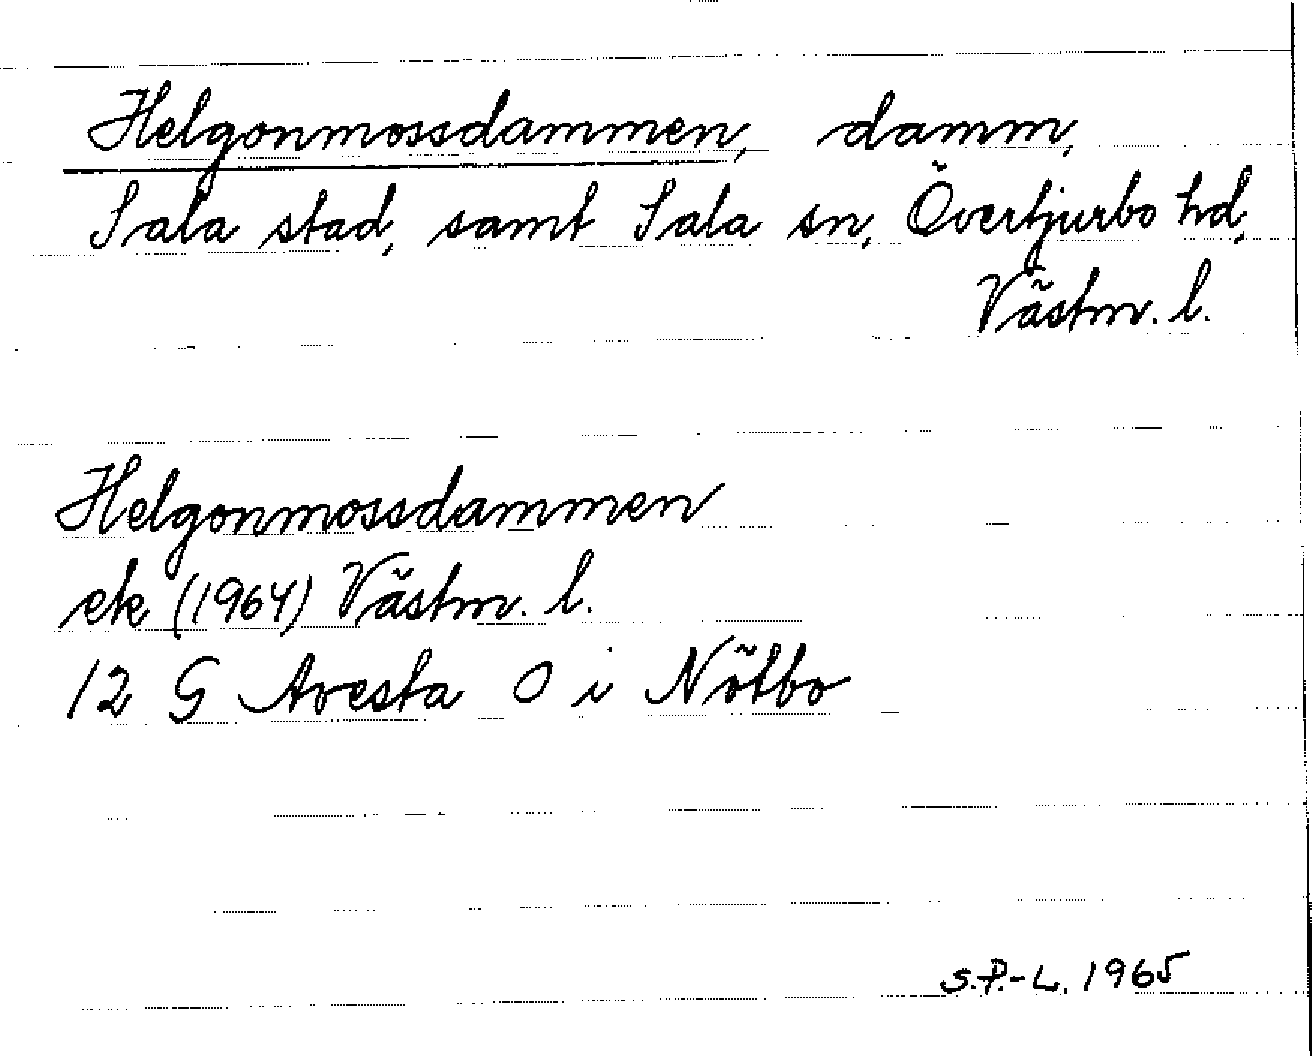 Helgonmossdammen, damm,
Sala stad, samt Sala sn, Övertjurbo hd,
Västm. l.
Helgonmossdammen
ek (1964) Västm. l.
12 G Avesta O i Nötbo
S.P.-L. 1965